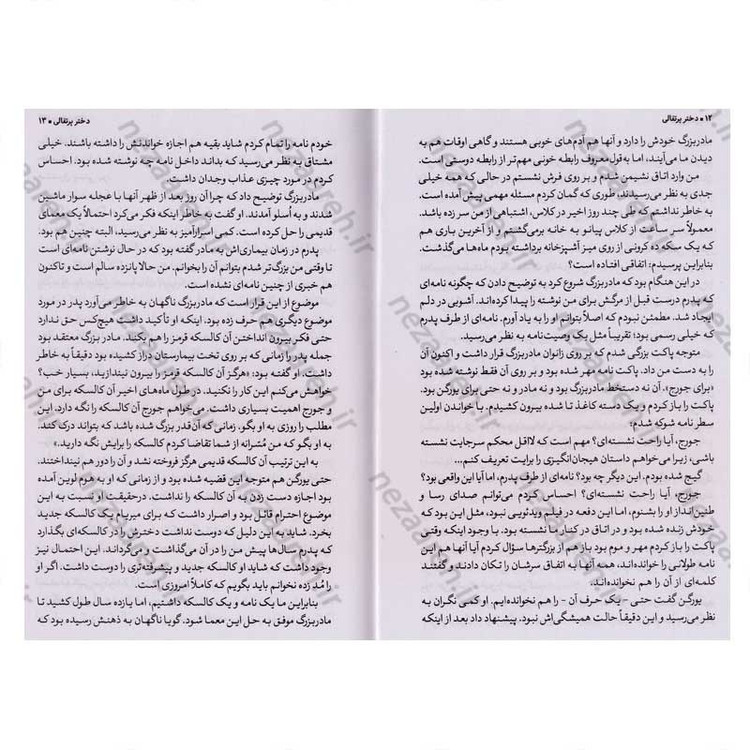 ۱۲ • دختر پرتقالی
مادربزرگ خودش را دارد و آنها هم آدم‌های خوبی هستند و گاهی اوقات هم به
دیدن ما می‌آیند، اما به‌قول معروف رابطه خونی مهم‌تر از رابطه دوستی است.
من وارد اتاق نشیمن شدم و بر روی فرش نشستم در حالی که همه خیلی
جدی به نظر می‌رسیدند، طوری که گمان کردم مسئله مهمی پیش آمده است.
به خاطر نداشتم که طی چند روز اخیر در کلاس، اشتباهی از من سر زده باشد.
معمولاً سر ساعت از کلاس پیانو به خانه برمی‌گشتم و از آخرین باری هم
که یک سکه ده کرونی از روی میز آشپزخانه برداشته بودم ماه‌ها می‌گذشت.
بنابراین پرسیدم: اتفاقی افتاده است؟
در این هنگام بود که مادربزرگ شروع کرد به توضیح دادن که چگونه نامه‌ای
که پدرم درست قبل از مرگش برای من نوشته را پیدا کرده‌اند. آشوبی در دلم
ایجاد شد. مطمئن نبودم که اصلاً بتوانم او را به یاد آورم. نامه‌ای از طرف پدرم
که خیلی رسمی بود؛ تقریباً مثل یک وصیت‌نامه به نظر می‌رسید.
متوجه پاکت بزرگی شدم که بر روی زانوان مادربزرگ قرار داشت و اکنون آن
را به دست من داد. پاکت نامه مهر شده بود و بر روی آن فقط نوشته شده بود
«برای جورج». آن نه دستخط مادربزرگ بود و نه مادر و نه حتی برای یورگن بود.
پاکت را باز کردم و یک دسته کاغذ تا شده بیرون کشیدم. با خواندن اولین
سطر نامه شوکه شدم:
جورج، آیا راحت نشسته‌ای؟ مهم است که لااقل محکم سرجایت نشسته
باشی، زیرا می‌خواهم داستان هیجان‌انگیزی را برایت تعریف کنم...
گیج شده بودم. این دیگر چه بود؟ نامه‌ای از طرف پدرم، اما آیا این واقعی بود؟
جورج، آیا راحت نشسته‌ای؟ احساس کردم می‌توانم صدای رسا و
طنین‌انداز او را بشنوم، اما این دفعه در فیلم ویدئویی نبود، مثل این بود که
خودش زنده شده بود و در اتاق در کنار ما نشسته بود. با وجود اینکه وقتی
پاکت را باز کردم مهر و موم بود باز هم از بزرگترها سؤال کردم آیا آنها هم این
نامه طولانی را خوانده‌اند، همه آنها به اتفاق سرشان را تکان دادند و گفتند
کلمه‌ای از آن را هم نخوانده‌اند.
یورگن گفت حتی – یک حرف آن – را هم نخوانده‌ایم. او کمی نگران به
نظر می‌رسید و این دقیقاً حالت همیشگی‌اش نبود. پیشنهاد داد بعد از اینکه
دختر پرتقالی • ۱۳
خودم نامه را تمام کردم شاید بقیه هم اجازه خواندنش را داشته باشند. خیلی
مشتاق به نظر می‌رسید که بداند داخل نامه چه نوشته شده بود. احساس
کردم در مورد چیزی عذاب وجدان داشت.
مادربزرگ توضیح داد که چرا آن روز بعد از ظهر آنها با عجله سوار ماشین
شدند و به اُسلو آمدند. او گفت به خاطر اینکه فکر می‌کرد احتمالاً یک معمای
قدیمی را حل کرده است. کمی اسرارآمیز به نظر می‌رسید، البته چنین هم بود.
پدرم در زمان بیماری‌اش به مادر گفته بود که در حال نوشتن نامه‌ای است
تا وقتی من بزرگ‌تر شدم بتوانم آن را بخوانم. من حالا پانزده سالم است و تاکنون
هم خبری از چنین نامه‌ای نشده است.
موضوع از این قرار است که مادربزرگ ناگهان به خاطر می‌آورد پدر در مورد
موضوع دیگری هم حرف زده بود. اینکه او تأکید داشت هیچ‌کس حق ندارد
حتی فکر بیرون انداختن آن کالسکه قرمز را هم بکند. مادر بزرگ معتقد بود
جمله پدر را زمانی که بر روی تخت بیمارستان دراز کشیده بود دقیقاً به خاطر
داشت. او گفته بود: «هرگز آن کالسکه قرمز را بیرون نیندازید، بسیار خب؟
خواهش می‌کنم این کار را نکنید. در طول ماه‌های اخیر آن کالسکه برای من
و جورج اهمیت بسیاری داشت. می‌خواهم جورج آن کالسکه را نگه دارد. این
مطلب را روزی به او بگو. زمانی که آن‌قدر بزرگ شده باشد که بتواند درک کند.
به او بگو که من مُسّرانه از شما تقاضا کردم کالسکه را برایش نگه دارید.»
به این ترتیب آن کالسکه قدیمی هرگز فروخته نشد و آن را دور هم نینداختند.
حتی یورگن هم متوجه این قضیه شده بود و از زمانی که او به هوم لوین آمده
بود اجازه دست زدن به آن کالسکه را نداشت. درحقیقت او نسبت به این
موضوع احترام قائل بود و اصرار داشت که برای میریام یک کالسکه جدید
بخرد. شاید به این دلیل که دوست نداشت دخترش را در کالسکه‌ای بگذارد
که پدرم سال‌ها پیش من را در آن می‌گذاشت و می‌گرداند. این احتمال نیز
وجود داشت که شاید او کالسکه جدید و پیشرفته‌تری را دوست داشت. اگر او
را مُد زده نخوانم باید بگویم که کاملاً امروزی است.
بنابراین ما یک نامه و یک کالسکه داشتیم، اما یازده سال طول کشید تا
مادربزرگ موفق به حل این معما شود. گویا ناگهان به ذهنش رسیده بود که
nezaareh.ir